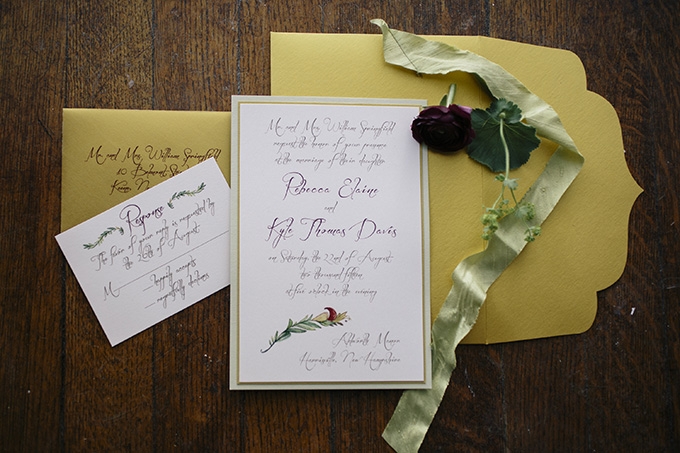 Mr. and Mrs. William Springfield
request the honor of your presence
at the marriage of their daughter
Rebecca Elaine
and
Kyle Thomas Davis
on Saturday, the 22nd of August
two thousand fifteen
at five o'clock in the evening
Aldworth Manor
Harrisville, New Hampshire
Mr. and Mrs. William Springfield
10 Belmont
Response
The favor of your reply is requested by
of August
M